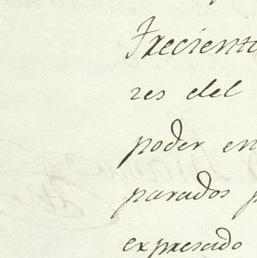 Trecient
res del
poder en
parados p
expresado